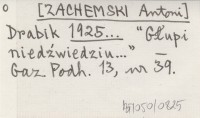 [ZACHEMSKI Antoni]
Drabik 1925... "Głupi
niedźwiedziu..." —
Gaz Podh. 13, nr 39.